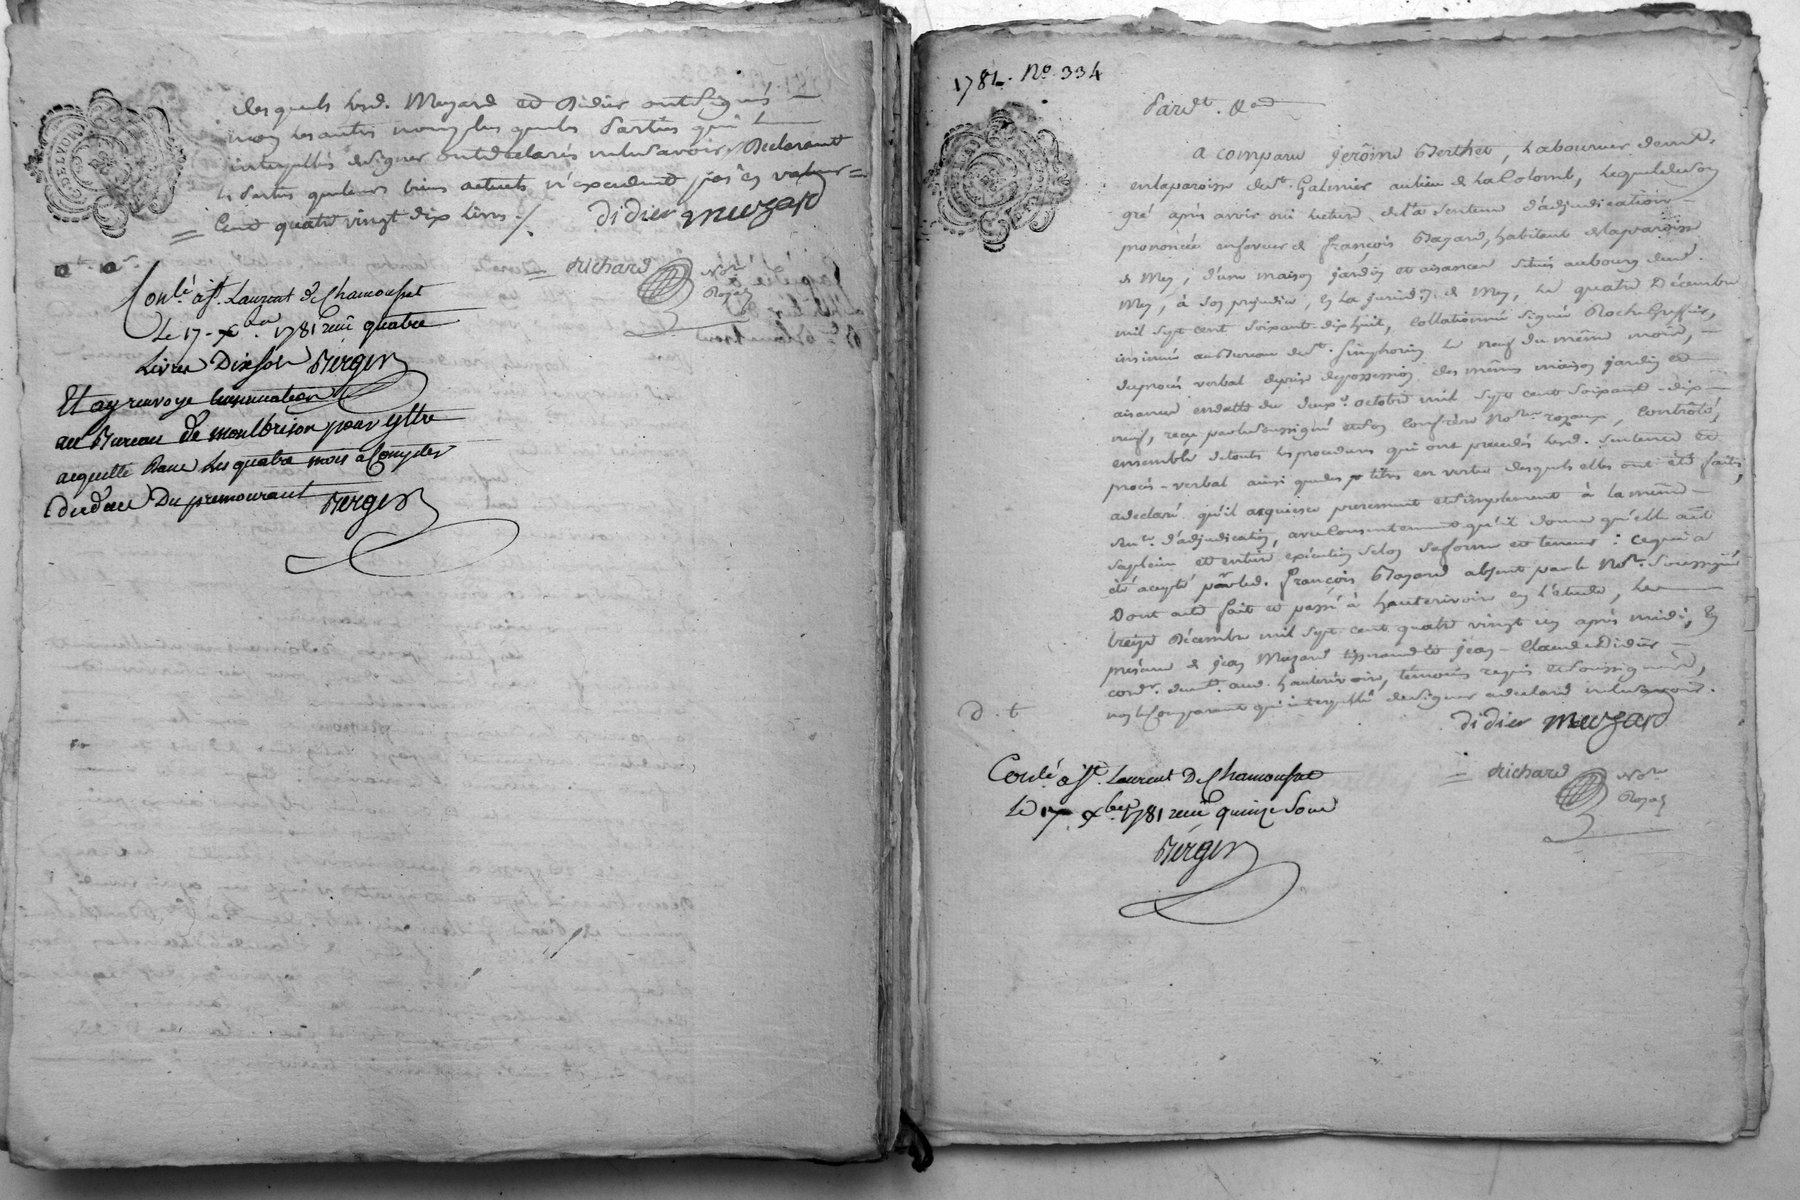 desquels led. Muzard et Didier ont signés
non les autres nony les quels Parties qui
interpellés de signer ont déclarés ne le savoir, Déclarant
les Parties que leurs biens actuels n'excedent pas en valeur =
= Cent quatre vingt dix Livres ./. didier muzard
= Richard Nore
Royal
Conlé à St. Laurent de Chamousset
Le 17 Xbre 1781 reçu quatre
Livres Dix sols Berger
Et ay renvoye Linsinuation
au Bureau de montbrison pour y Estre
acquitté Dans Les quatre mois a Compter
du deces Du premourant Berger
DE LYON
1781. No. 334
Pardt. &ad
A comparu Jerôme Berthet, Laboureur demt.
en la paroisse de St. Galmier au lieu de La Colomb, Lequel de son
gré après avoir oui lecture de la sentence d'adjudication
prononcée en faveur de françois Bazard, habitant de la paroisse
de Mey, d'une maison jardin et aisances situés au bourg dud.
Mey, à son prejudice, en la juridon de Mey, le quatre Décembre
mil sept cent soixante dix huit, collationnée signée Roche Greffier,
insinué au Bureau de St. Simphorien le neuf du même mois,
du procés verbal de prise de possession des mêmes maison jardin et
aisances en datte du deux octobre mil sept cent soixante dix
neuf, reçu par le soussigné et son confrère Nores royaux, contrôlé,
ensemble de touts les procedures qui ont précédés lesd. sentence et
procés-verbal ainsi que des titres en vertu desquels elles ont été faites,
a déclaré, qu'il acquiesce purement et simplement à la même
sence. d'adjudication, avec consentement qu'il donne qu'elle ait
sa plein et entière exécution selon sa forme et teneur : ce qui a
été accepté par led. françois Bazard absent par le Nore. soussigné
Dont acte fait et passé à hauterivoire en l'étude, le
treize Décembre mil sept cent quatre vingt un après midi, En
présence de Jean Muzard tisserand et Jean-Claude Didier
cordr. demts. aud. hauterivoire, témoins requis et soussignés,
non le comparant qui interpellé de signer a déclaré ne le savoir.
d. t didier muzard
= Richard Nore
Royal
Conlé à St. Laurent De Chamousset
Le 17 Xbre 1781 reçu quinze sous
Berger